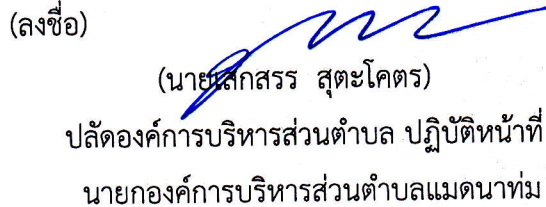 (ลงชื่อ)
(นายเสกสรร สุตะโคตร)
ปลัดองค์การบริหารส่วนตำบล ปฏิบัติหน้าที่
นายกองค์การบริหารส่วนตำบลแมดนาท่ม